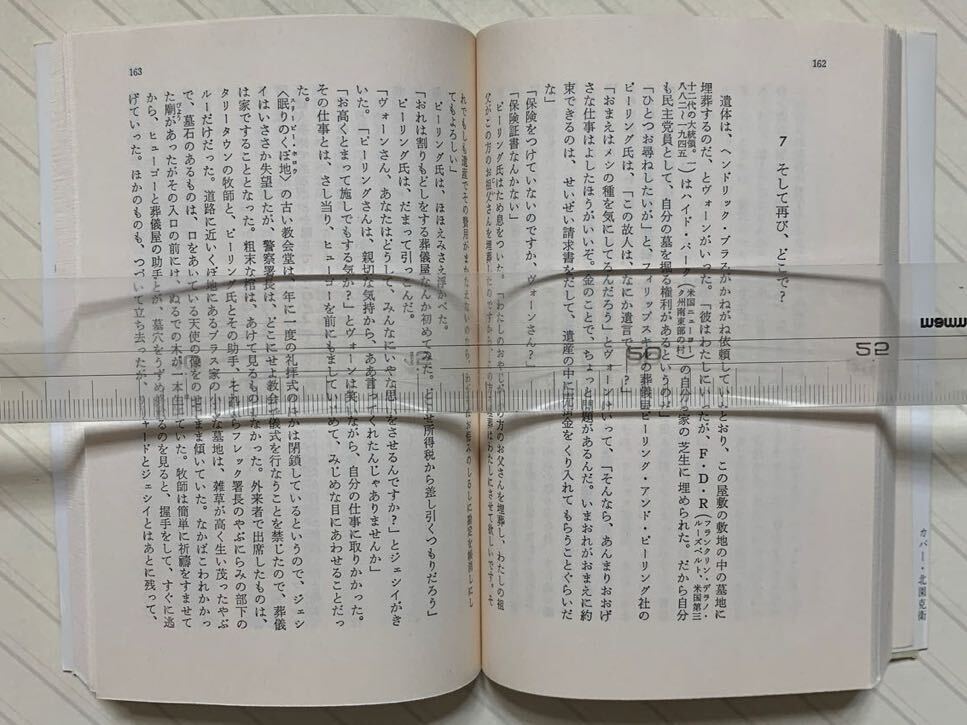 162
7 そして再び、どこで？
遺体は、ヘンドリック・ブラスがかねがね依頼していたとおり、この屋敷の敷地の中の墓地に
埋葬するのだ、とヴォーンがいった。「彼はわたしにいったが、F・D・R（フランクリン・デラノ・ルーズベルト、米国第三
十二代の大統領。一八八二〜一九四五）はハイド・パーク（米国ニューヨーク州南東部の村）の自分の家の芝生に埋められた。だから自分
も民主党員として、自分の墓を掘る権利があるというのよ」
「ひとつお尋ねしたいが」と、フィリップスキルの葬儀屋ピーリング・アンド・ピーリング社の
ピーリング氏は、「この故人は、なにか遺言で――？」
「おまえはメシの種を気にしてるんだろう」とヴォーンはいって、「そんなら、あんまりおおげ
さな仕事はよしたほうがいいぞ。金のことで、ちょっと問題があるんだ。いまおれがおまえに約
束できるのは、せいぜい請求書をだして、遺産の中に現金をくり入れてもらうことぐらいだ
な」
「保険をつけていないのですか、ヴォーンさん？」
「保険証書なんかない」
ピーリング氏はため息をついた。「わたしのおやじが、あの方のお父さんを埋葬し、わたしの祖
父があの方のお祖父さんを埋葬したのですから、この方の
163
れでもしも遺産でその費用がまかなえないのなら、
てもよろしい」
ピーリング氏は、ほほえみさえ浮かべた。
「おれは割りもどしをする葬儀屋なんか初めてみた。どうせ所得税から差し引くつもりだろう」
ピーリング氏は、だまって引っこんだ。
「ヴォーンさん、あなたはどうして、みんなにいやな思いをさせるんですか？」とジェシイがき
いた。「ピーリングさんは、親切な気持から、ああ言ってくれたんじゃありませんか」
「お高くとまって施しでもする気か？」とヴォーンは笑いながら、自分の仕事に取りかかった。
その仕事とは、さし当り、ヒューゴーを前にもましていじめて、みじめな目にあわせることだっ
た。
〈眠りのくぼ地〉の古い教会堂は、年に一度の礼拝式のほかは閉鎖しているというので、ジェシ
イはいささか失望したが、警察署長は、どこにせよ教会で儀式を行なうことを禁じたので、葬儀
は家ですることとなった。粗末な棺は、あけて見るものもなかった。外来者で出席したものは、
タリータウンの牧師と、ピーリング氏とその助手、それからフレック署長のやぶにらみの部下の
ルーだけだった。道路に近いくぼ地にあるブラス家の小さな墓地は、雑草が高く生い茂ったやぶ
で、墓石のあるものは、口をあいている天使の像をのせたまま傾いていた。なかばこわれかかっ
た廟があったがその入口の前には、ぬるでの木が一本生えていた。牧師は簡単に祈禱をすませて
から、ヒューゴーと葬儀屋の助手とが、墓穴をうずめ始めるのを見ると、握手をして、すぐに逃
げていった。ほかのものも、つづいて立ち去ったが、リチャードとジェシイとはあとに残って、
50
52
カバー・北園克衛